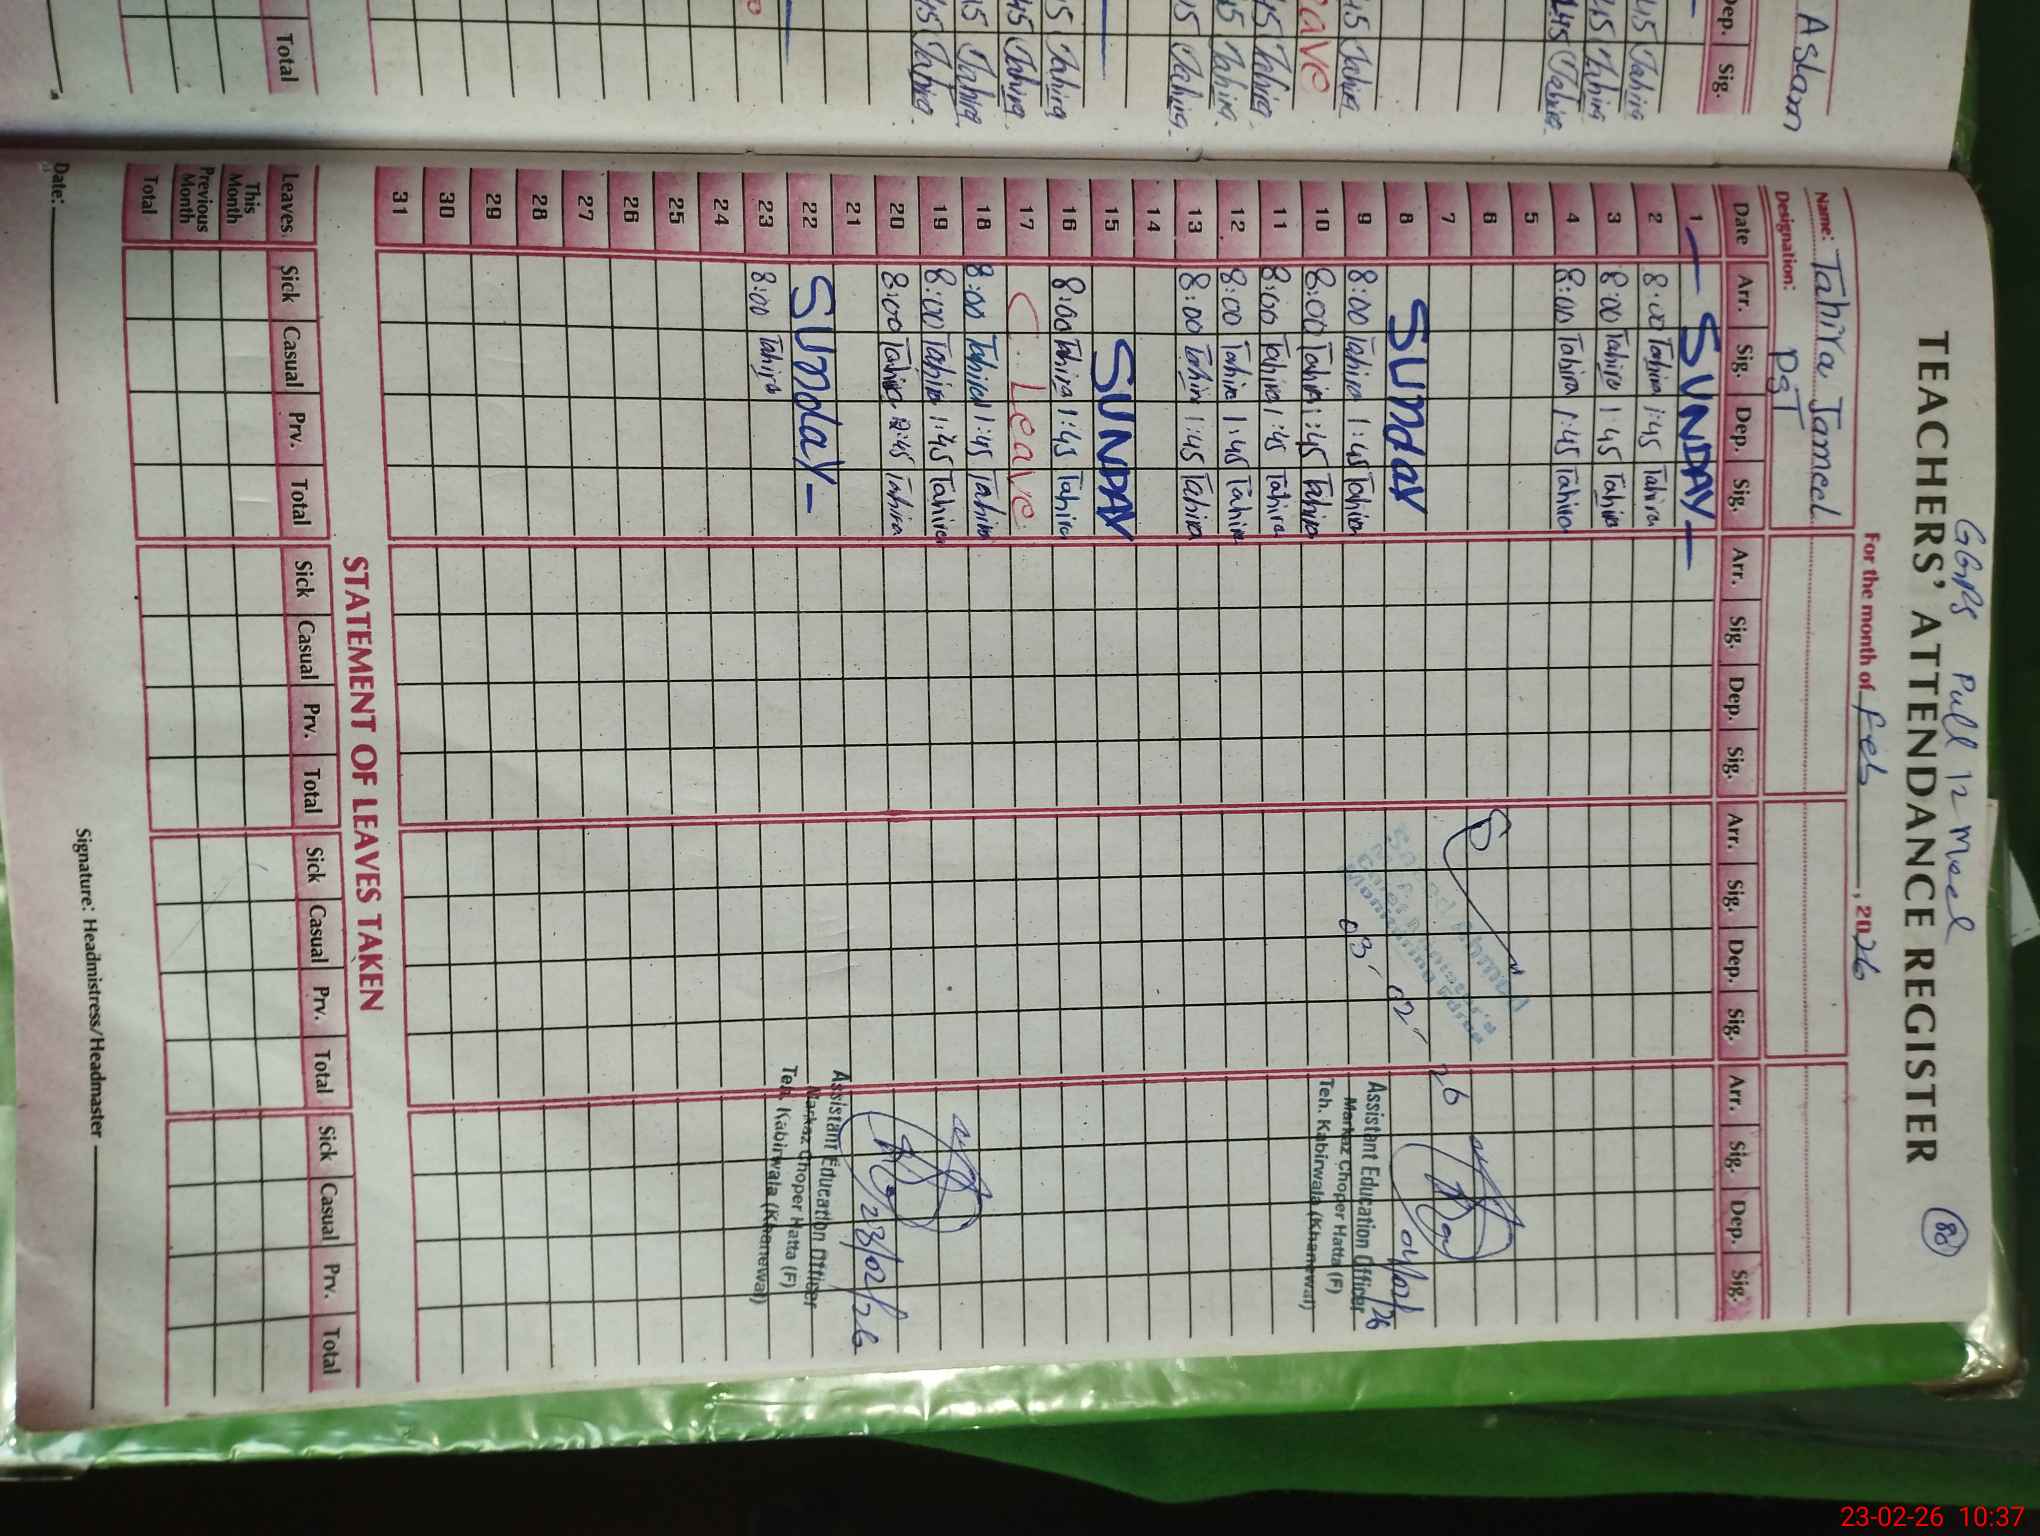 Aslam
Dep. Sig.
45 Tahira
45 Tahira
1:45 Tahira
45 Tahira
eave
45 Tahira
45 Tahira
45 Tahira
45 Tahira
45 Tahira
45 Tahira
45 Tahira
Total
88
TEACHERS' ATTENDANCE REGISTER
For the month of Feb, 2026
Name: Tahira Jameel
Designation: PST
Date Arr. Sig. Dep. Sig. Arr. Sig. Dep. Sig. Arr. Sig. Dep. Sig. Arr. Sig. Dep. Sig.
1 — SUNDAY —
2 8:00 Tahira 1:45 Tahira
3 8:00 Tahira 1:45 Tahira
4 8:00 Tahira 1:45 Tahira
5
6
7
8 SUndaY
9 8:00 Tahira 1:45 Tahira
10 8:00 Tahira 1:45 Tahira
11 8:00 Tahira 1:45 Tahira
12 8:00 Tahira 1:45 Tahira
13 8:00 Tahira 1:45 Tahira
14
15 SUNDAY
16 8:00 Tahira 1:45 Tahira
17 C. Leave
18 8:00 Tahira 1:45 Tahira
19 8:00 Tahira 1:45 Tahira
20 8:00 Tahira 2:45 Tahira
21
22 SUndaY —
23 8:00 Tahira
24
25
26
27
28
29
30
31
Ahmed
Chief Minister's
Monitoring Force
03
02
26
Assistant Education Officer
Markaz Choper Hatta (F)
Teh. Kabirwala (Khanewal)
23/02/26
Assistant Education Officer
Markaz Choper Hatta (F)
Teh. Kabirwala (Khanewal)
STATEMENT OF LEAVES TAKEN
Leaves Sick Casual Prv. Total Sick Casual Prv. Total Sick Casual Prv. Total Sick Casual Prv. Total
This Month
Previous Month
Total
Date:
Signature: Headmistress/Headmaster
23-02-26 10:37